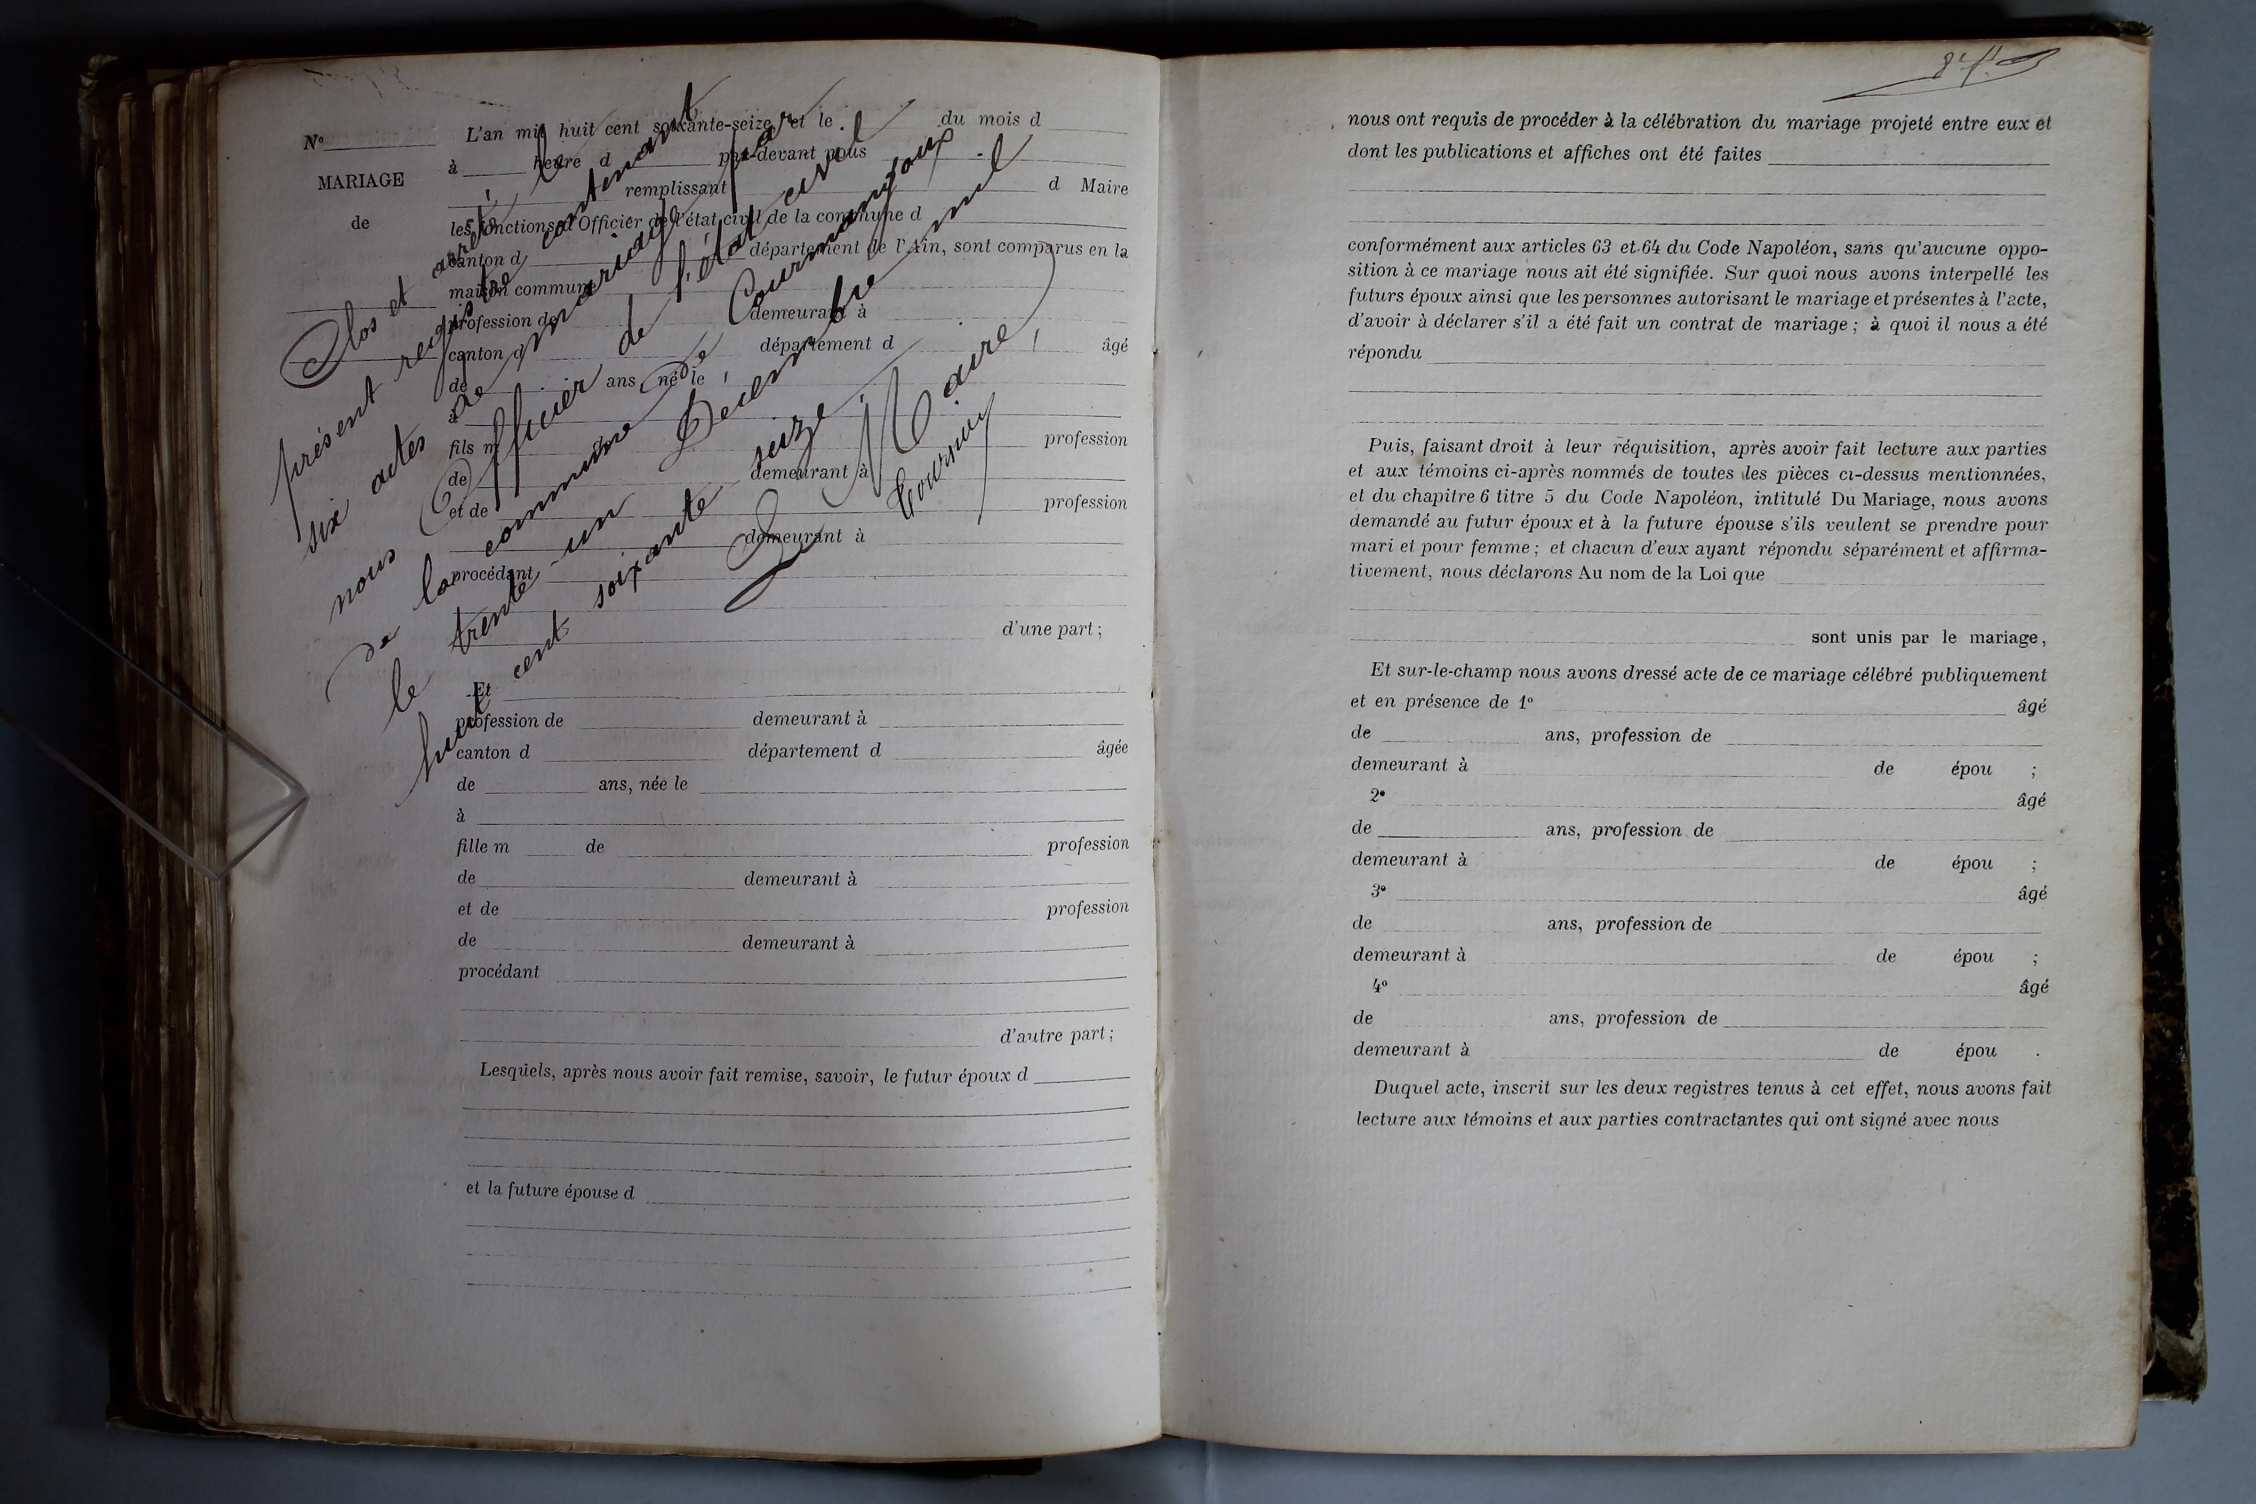 84
N°
MARIAGE
de
L'an mil huit cent soixante-seize et le du mois d
à heure d par-devant nous
remplissant d Maire
les fonctions d'Officier de l'état civil de la commune d
canton d département de l'Ain, sont comparus en la
maison commune
profession de demeurant à
canton d département d âgé
de ans né le
à
fils m profession
de demeurant à
et de profession
demeurant à
procédant
d'une part ;
Et
profession de demeurant à
canton d département d âgée
de ans, née le
à
fille m de profession
de demeurant à
et de profession
de demeurant à
procédant
d'autre part ;
Lesquels, après nous avoir fait remise, savoir, le futur époux d
et la future épouse d
Clos et arrêté le
présent registre contenant
six actes de mariage par
nous Officier de l'état civil
de la commune de Courmangoux
le trente-un Décembre mil
huit cent soixante seize
Le Maire
nous ont requis de procéder à la célébration du mariage projeté entre eux et
dont les publications et affiches ont été faites
conformément aux articles 63 et 64 du Code Napoléon, sans qu'aucune oppo-
sition à ce mariage nous ait été signifiée. Sur quoi nous avons interpellé les
futurs époux ainsi que les personnes autorisant le mariage et présentes à l'acte,
d'avoir à déclarer s'il a été fait un contrat de mariage ; à quoi il nous a été
répondu
Puis, faisant droit à leur réquisition, après avoir fait lecture aux parties
et aux témoins ci-après nommés de toutes les pièces ci-dessus mentionnées,
et du chapitre 6 titre 5 du Code Napoléon, intitulé Du Mariage, nous avons
demandé au futur époux et à la future épouse s'ils veulent se prendre pour
mari et pour femme ; et chacun d'eux ayant répondu séparément et affirma-
tivement, nous déclarons Au nom de la Loi que
sont unis par le mariage,
Et sur-le-champ nous avons dressé acte de ce mariage célébré publiquement
et en présence de 1° âgé
de ans, profession de
demeurant à de épou ;
2° âgé
de ans, profession de
demeurant à de épou ;
3° âgé
de ans, profession de
demeurant à de épou ;
4° âgé
de ans, profession de
demeurant à de épou .
Duquel acte, inscrit sur les deux registres tenus à cet effet, nous avons fait
lecture aux témoins et aux parties contractantes qui ont signé avec nous